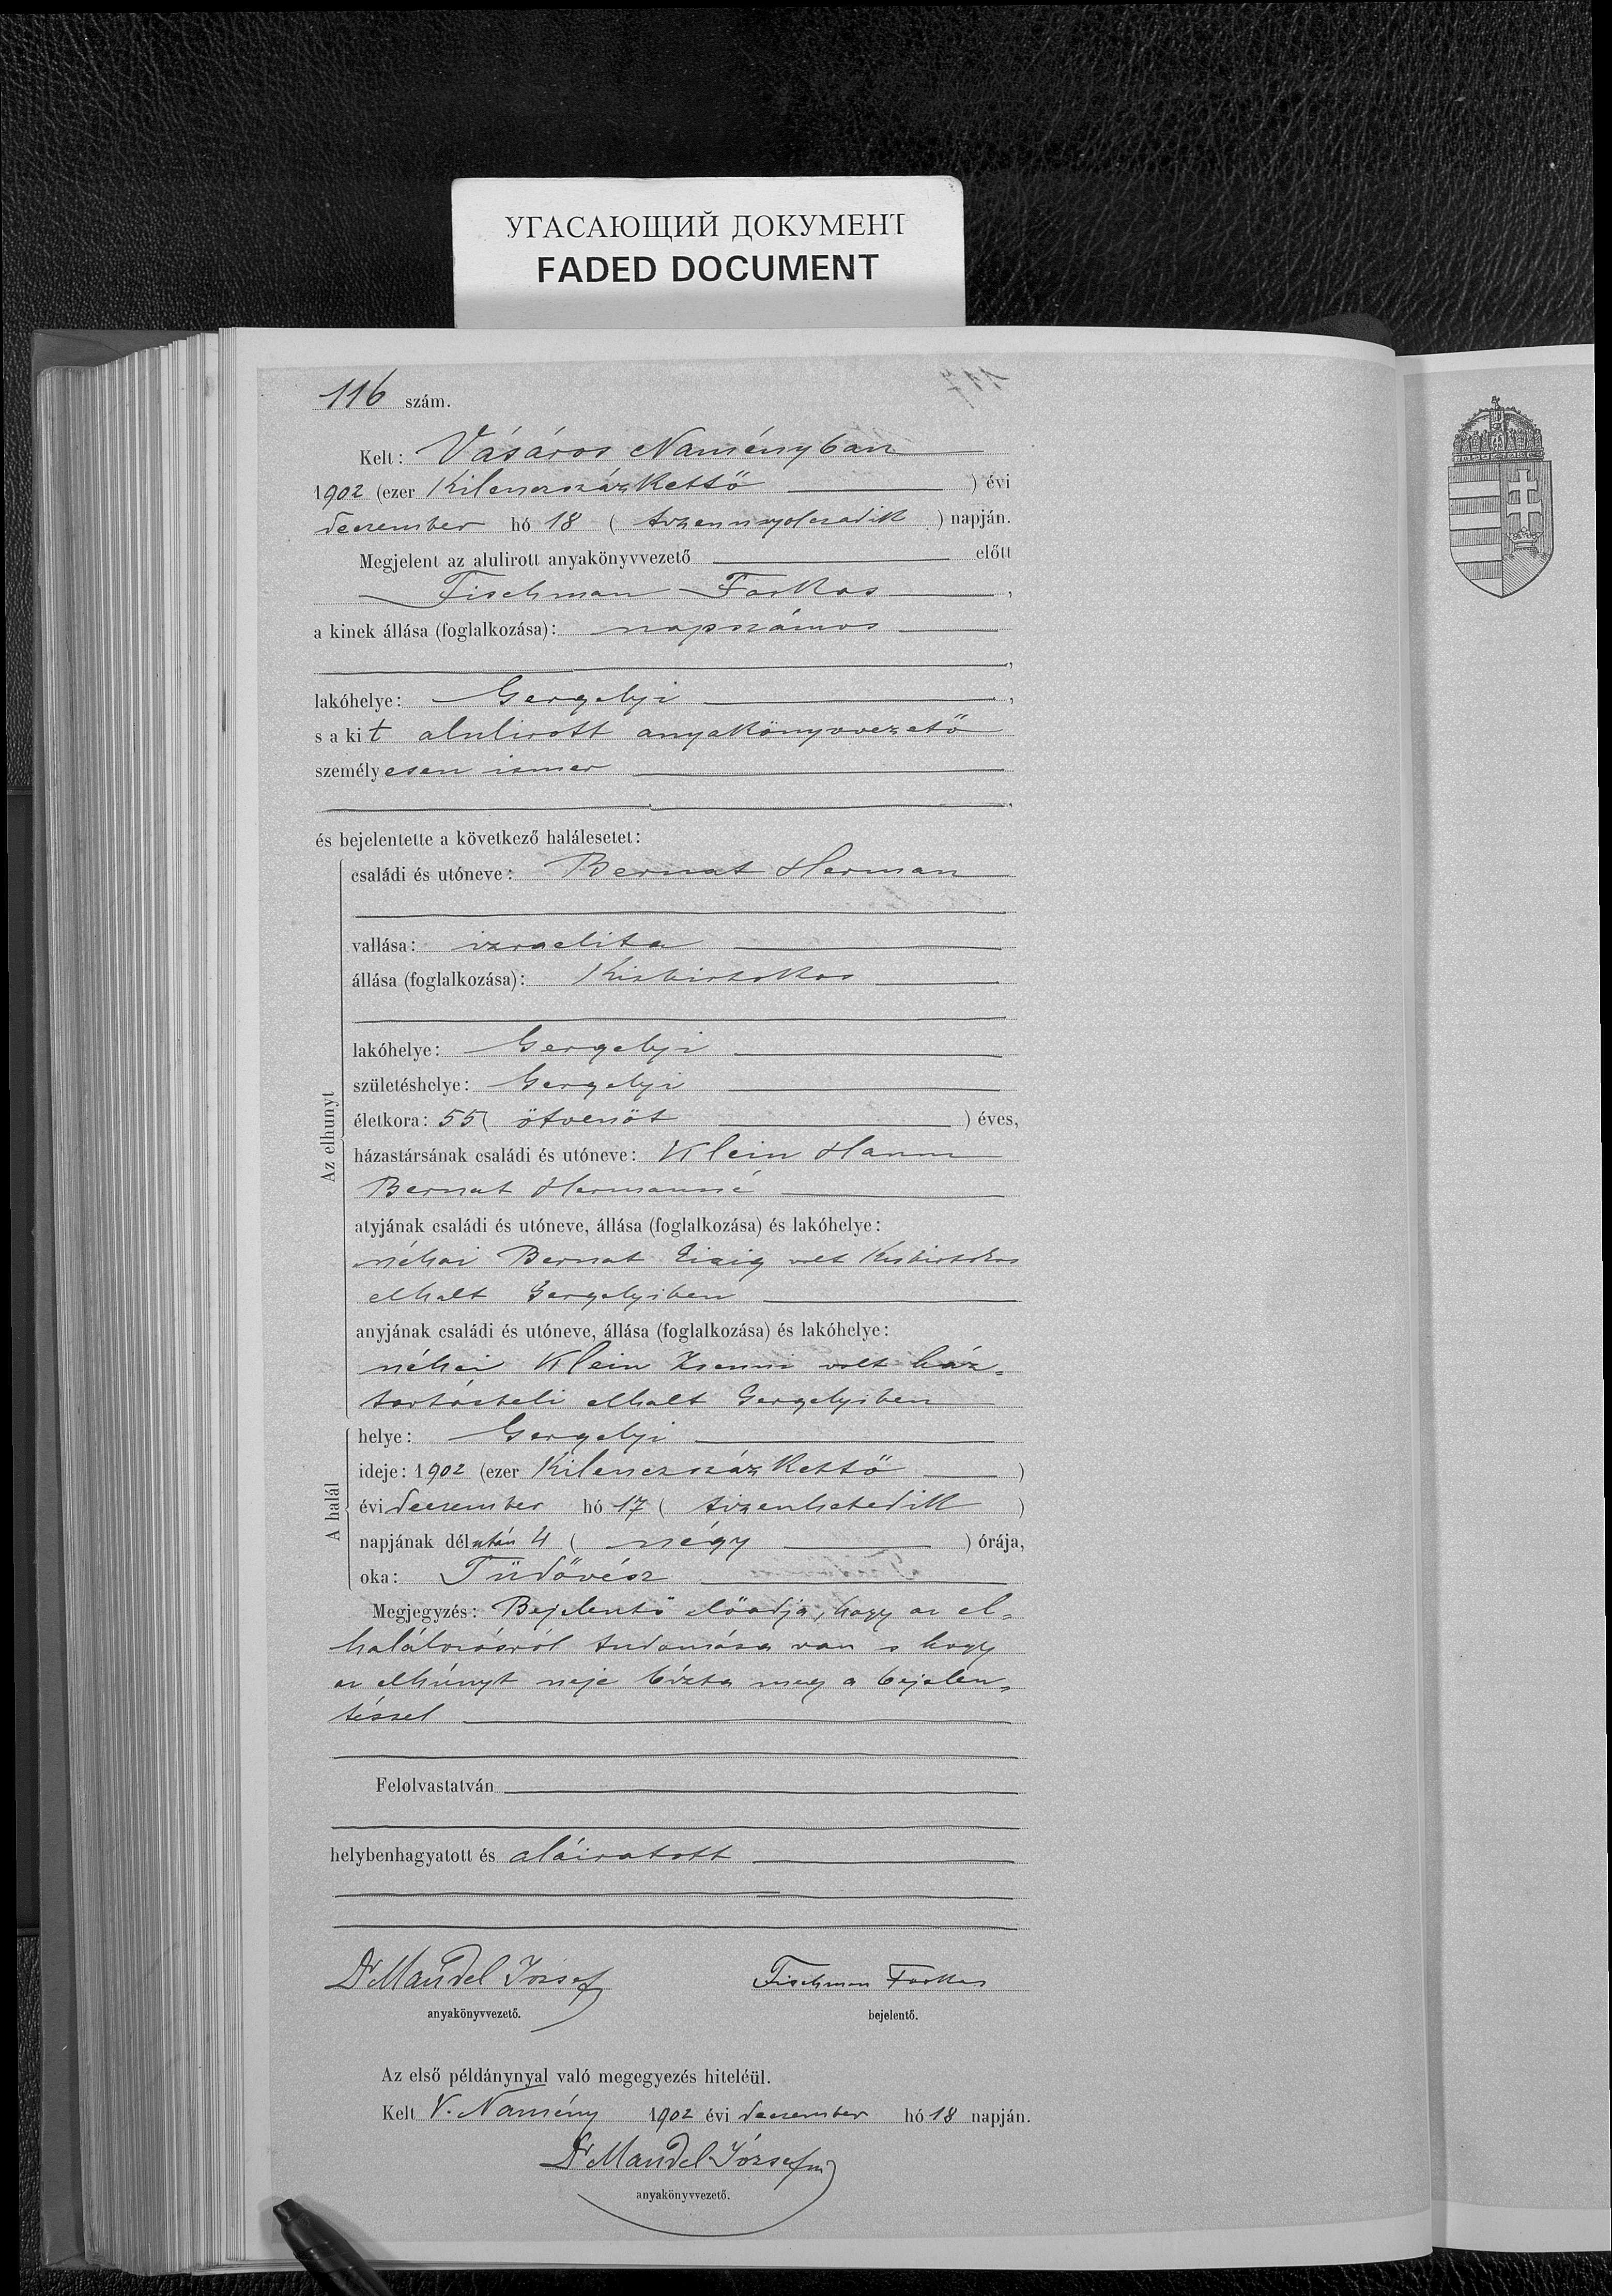 УГАСАЮЩИЙ ДОКУМЕНТ
FADED DOCUMENT
116 szám.
Kelt: Vásáros Naményban
1902 (ezer kilenczszáz kettő ) évi
deczember hó 18 ( tizennyolczadik ) napján.
Megjelent az alulirott anyakönyvvezető előtt
Fischman Farkas ,
a kinek állása (foglalkozása): napszámos
,
lakóhelye: Gergelyi ,
s a kit alulirott anyakönyvvezető
személyesen ismer
és bejelentette a következő halálesetet:
Az elhunyt
családi és utóneve: Bernat Herman
vallása: izraelita
állása (foglalkozása): Kisbirtokos
lakóhelye: Gergelyi
születéshelye: Gergelyi
életkora: 55 ( ötvenöt ) éves,
házastársának családi és utóneve: Klein Hanni
Bernat Hermanné
atyjának családi és utóneve, állása (foglalkozása) és lakóhelye:
néhai Bernat Eizig volt Kisbirtokos
elhalt Gergelyiben
anyjának családi és utóneve, állása (foglalkozása) és lakóhelye:
néhai Klein Zsenni volt ház-
tartásbeli elhalt Gergelyiben
A halál
helye: Gergelyi
ideje: 1902 (ezer kilenczszáz kettő )
évi deczember hó 17 ( tizenhetedik )
napjának délután 4 ( négy ) órája,
oka: Tüdővész
Megjegyzés: Bejelentő előadja, hogy az el-
halálozásról tudomása van s hogy
az elhúnyt neje bízta meg a bejelen-
téssel
Felolvastatván
helybenhagyatott és aláiratott
Dr Mandel József
anyakönyvvezető.
Fischman Farkas
bejelentő.
Az első példánynyal való megegyezés hiteléül.
Kelt V. Namény 1902 évi deczember hó 18 napján.
Dr Mandel József
anyakönyvvezető.